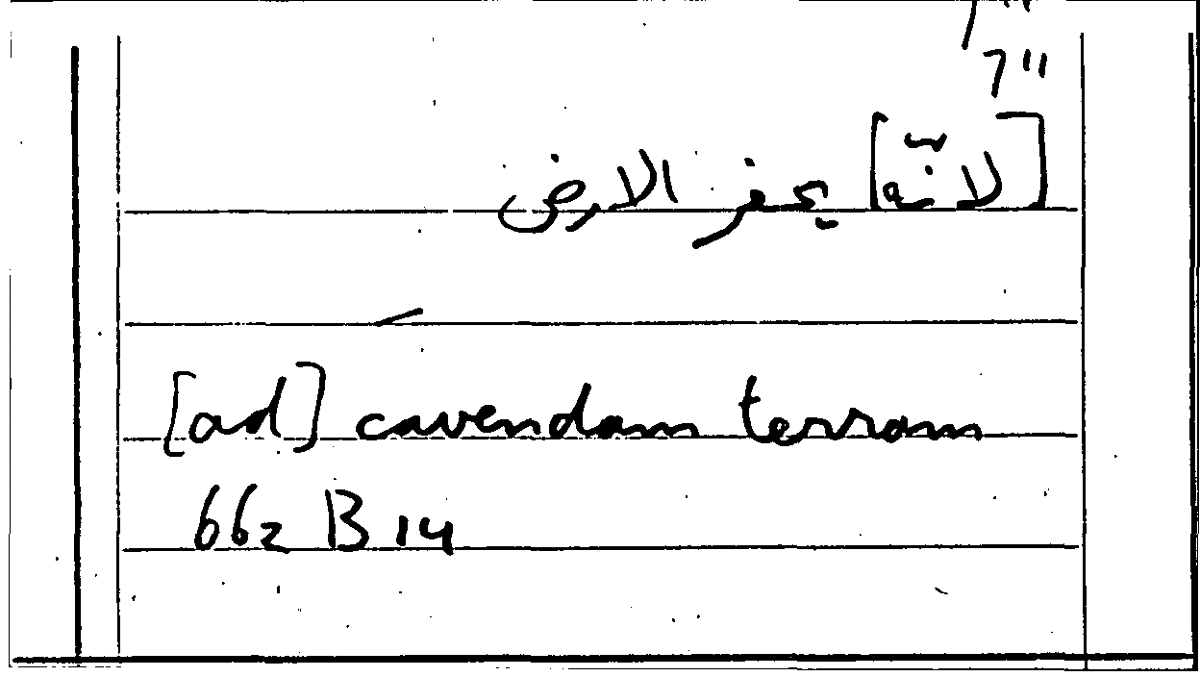 [لانّه] يحفر الارض
[ad] cavendam terram
662 B 14